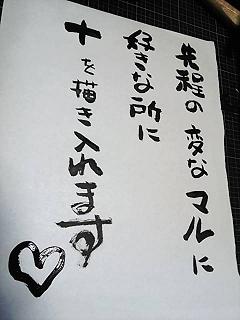 先程の変なマルに
好きな所に
十を描き入れます